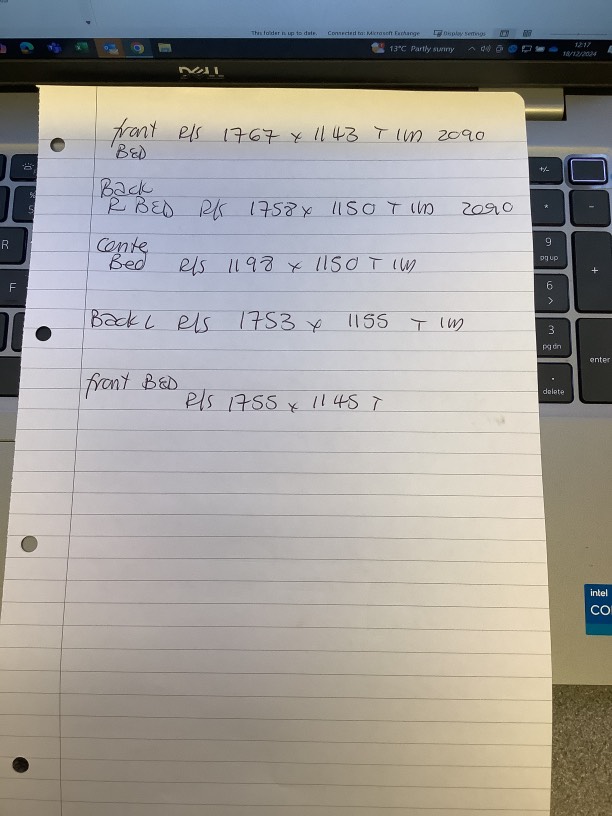 This folder is up to date. Connected to: Microsoft Exchange Display Settings
13°C Partly sunny
12:17
18/12/2024
DELL
front R/S 1767 x 1143 T IW 2090
BED
Back
R BED R/S 1758 x 1150 T IW 2090
Cente
Bed R/S 1198 x 1150 T IW
Back L R/S 1753 x 1155 T IW
front BED
R/S 1755 x 1145 T
R
F
%
5
+/-
*
-
9
pg up
+
6
>
3
pg dn
enter
.
delete
intel
CO